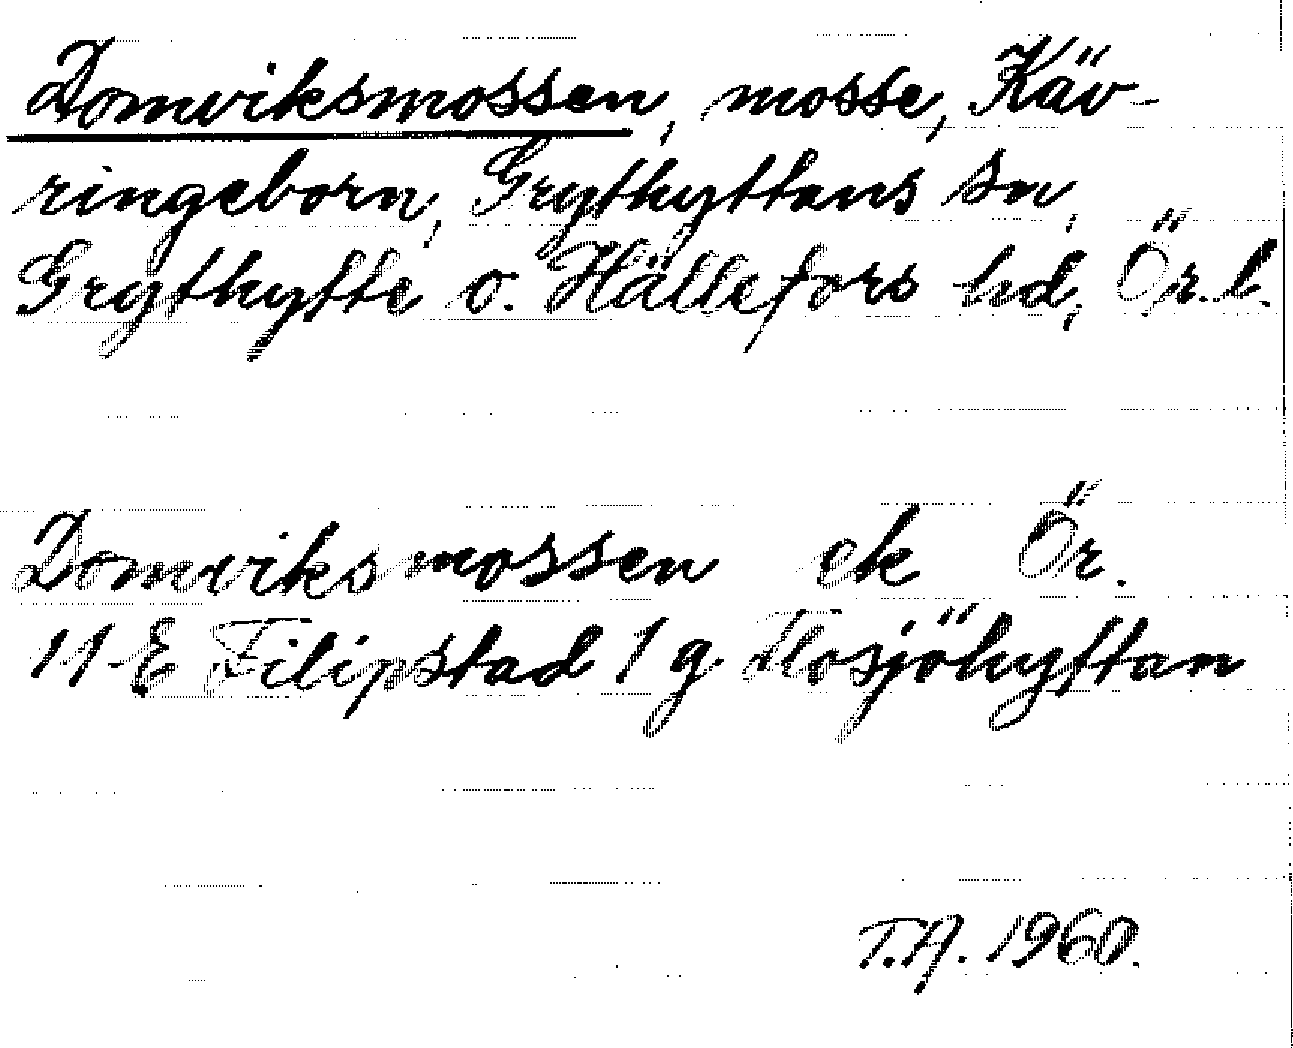 Domviksmossen, mosse, Käv-
ringeborn, Grythyttans sn,
Grythytte o. Hällefors hd, Ör. l.
Domviksmossen ek Ör.
11 E Filipstad 1 g Mosjöhyttan
T.A. 1960.